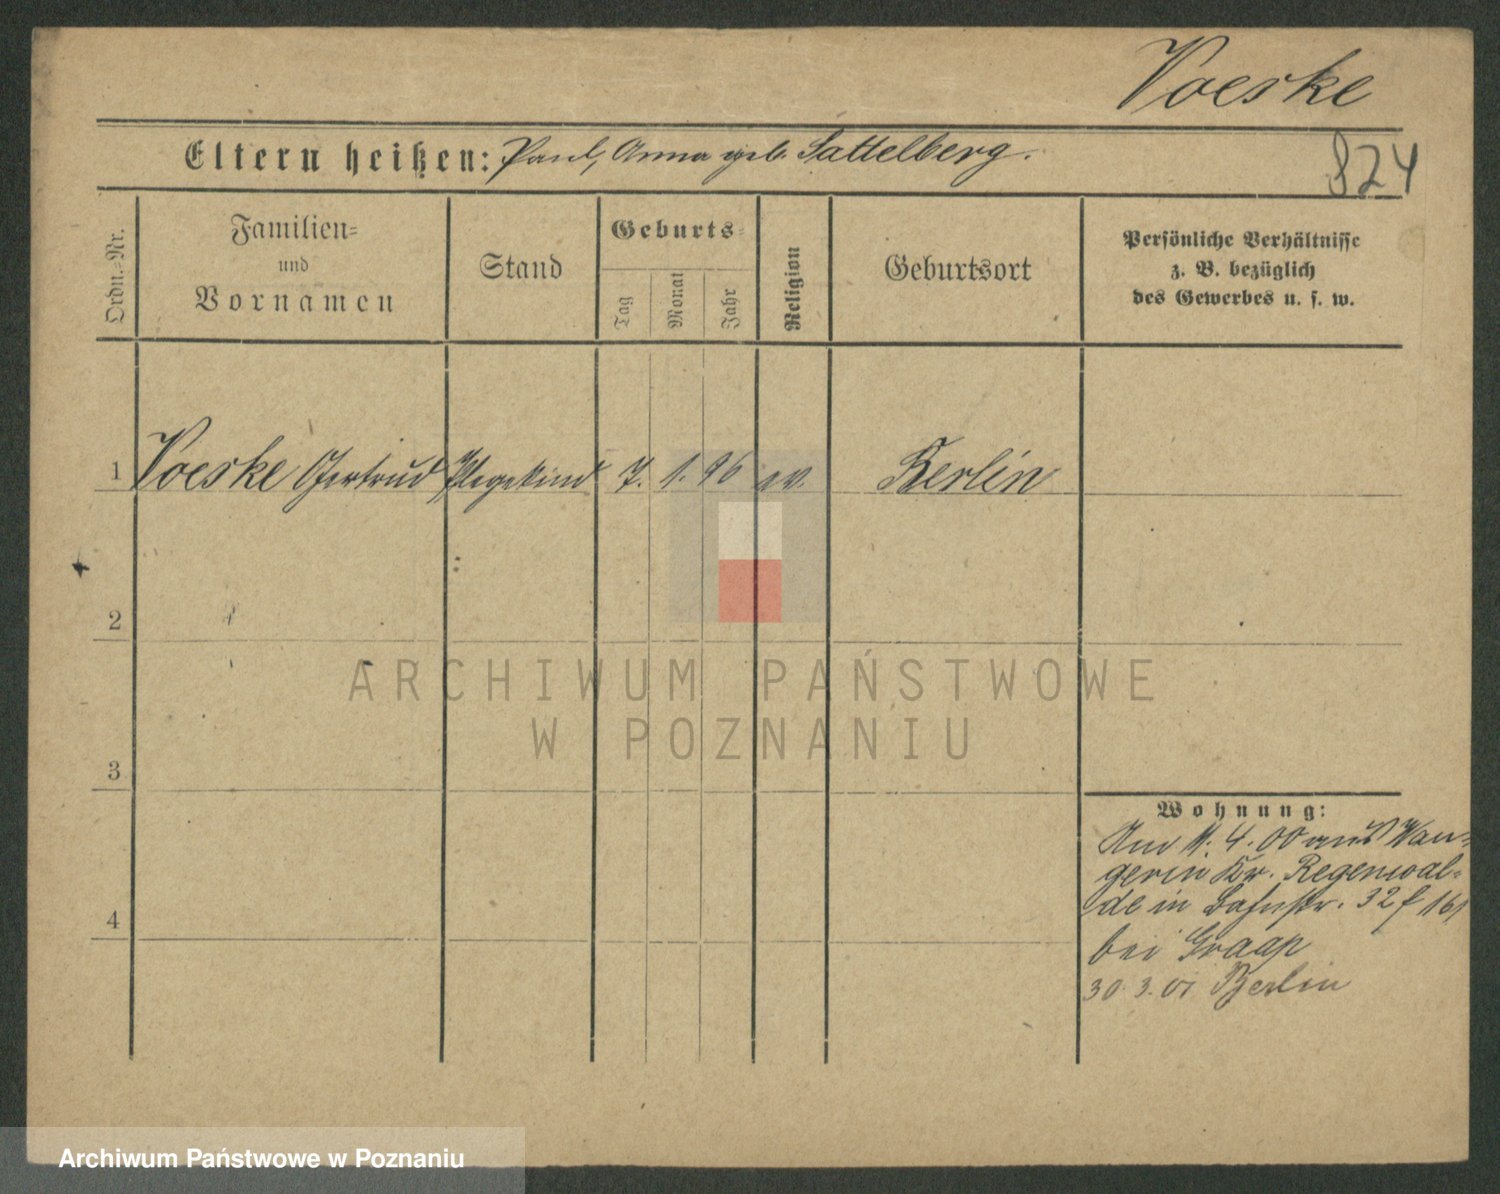 Voeske
Eltern heißen: Paul, Anna geb. Sattelberg.
824
Ordn.-Nr.
Familien-
und
Vornamen
Stand
Geburts-
Tag
Monat
Jahr
Religion
Geburtsort
Persönliche Verhältnisse
z. B. bezüglich
des Gewerbes u. s. w.
1 Voeske Gertrud Pflegekind 7. 1. 96 ev. Berlin
2
3
4
Wohnung:
Am 11. 4. 00 aus Wan-
gerin Kr. Regenwal-
de in Bahnstr. 32 f 161
bei Graap
30. 3. 01 Berlin
ARCHIWUM PAŃSTWOWE
W POZNANIU
Archiwum Państwowe w Poznaniu